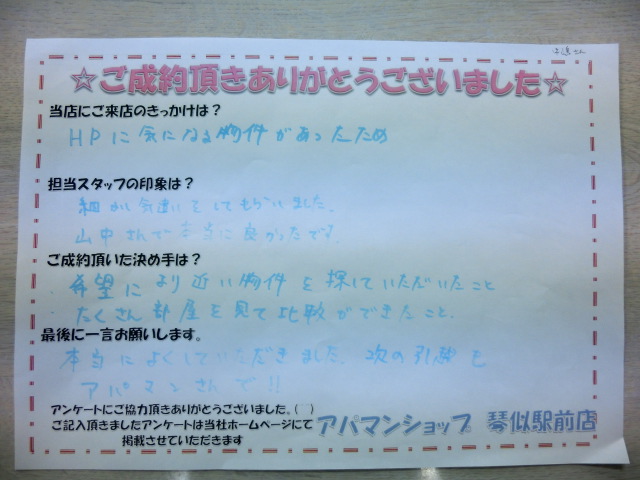 ☆ご成約頂きありがとうございました☆
当店にご来店のきっかけは？
HPに気になる物件があったため
担当スタッフの印象は？
細かい気遣いをしてもらいました。
山中さんで本当に良かったです。
ご成約頂いた決め手は？
・希望により近い物件を探していただいたこと
・たくさん部屋を見て比較ができたこと。
最後に一言お願いします。
本当によくしていただきました。次の引越も
アパマンさんで!!
アンケートにご協力頂きありがとうございました。(￣￣)
ご記入頂きましたアンケートは当社ホームページにて
掲載させていただきます
アパマンショップ 琴似駅前店